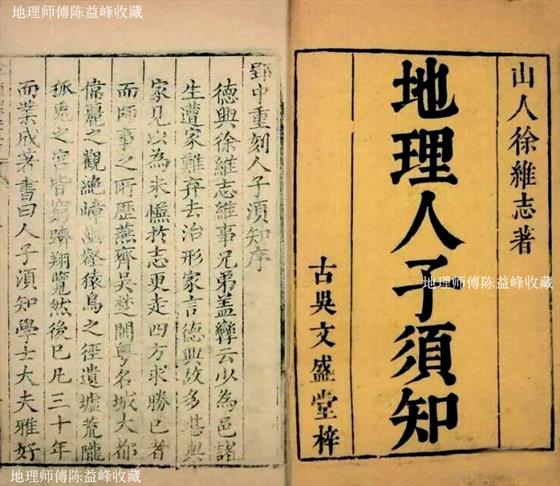 地理师傅陈益峰收藏
山人徐維志著
地理人子須知
古吳文盛堂梓
地理师傅陈益峰收藏
郢中重刻人子須知序
德興徐維志維事兄弟盖孿云少為邑諸
生遭家難弃去治形家言德興故多甚與
家見以為未慊於志更走四方求勝己者
而師事之所歷燕齊吳楚閩粤名城大都
偉麗之觀絕嶂猿鳥之徑遺墟荒隴
狐兎之穴皆窮躋翔覽然後已凡三十年
而業成著書曰人子須知學士大夫雅好
地理师傅陈益峰收藏